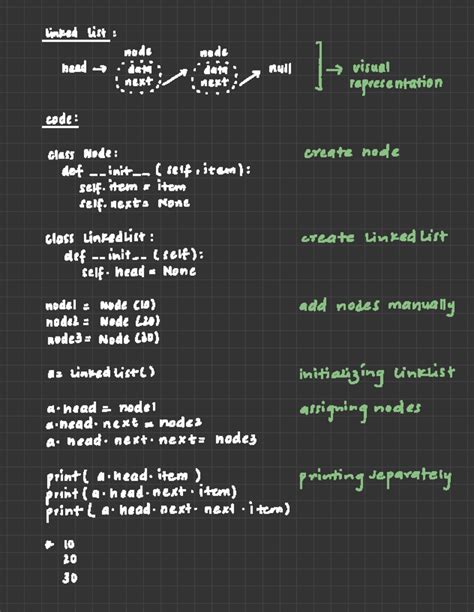 linked list:
node node
head → data → data → null ] → visual
next next representation
code:
class Node: create node
def __init__ (self, item):
self. item = item
self. next = None
class LinkedList: create LinkedList
def __init__ (self):
self. head = None
node1 = Node (10) add nodes manually
node2 = Node (20)
node3 = Node (30)
a = LinkedList() initializing LinkList
a.head = node1 assigning nodes
a.head.next = node2
a. head. next. next = node3
print( a.head.item ) printing separately
print( a.head.next.item)
print( a.head.next.next.item)
* 10
20
30